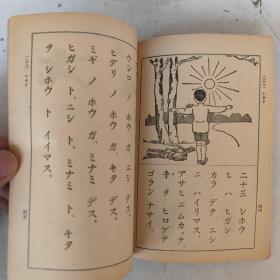 二十三 シホウ
ヒ ハ ヒガシ
カラ デテ、ニシ
ニ ハイリマス。
アサヒ ニ ムカッテ、
手 ヲ ヒロゲテ
ゴラン ナサイ。
ウシロ ノ ホウ ガ、ニシ デス。
ヒダリ ノ ホウ ガ、キタ デス。
ミギ ノ ホウ ガ、ミナミ デス。
ヒガシ ト、ニシ ト、ミナミ ト、キタ
ヲ シホウ ト イイマス。